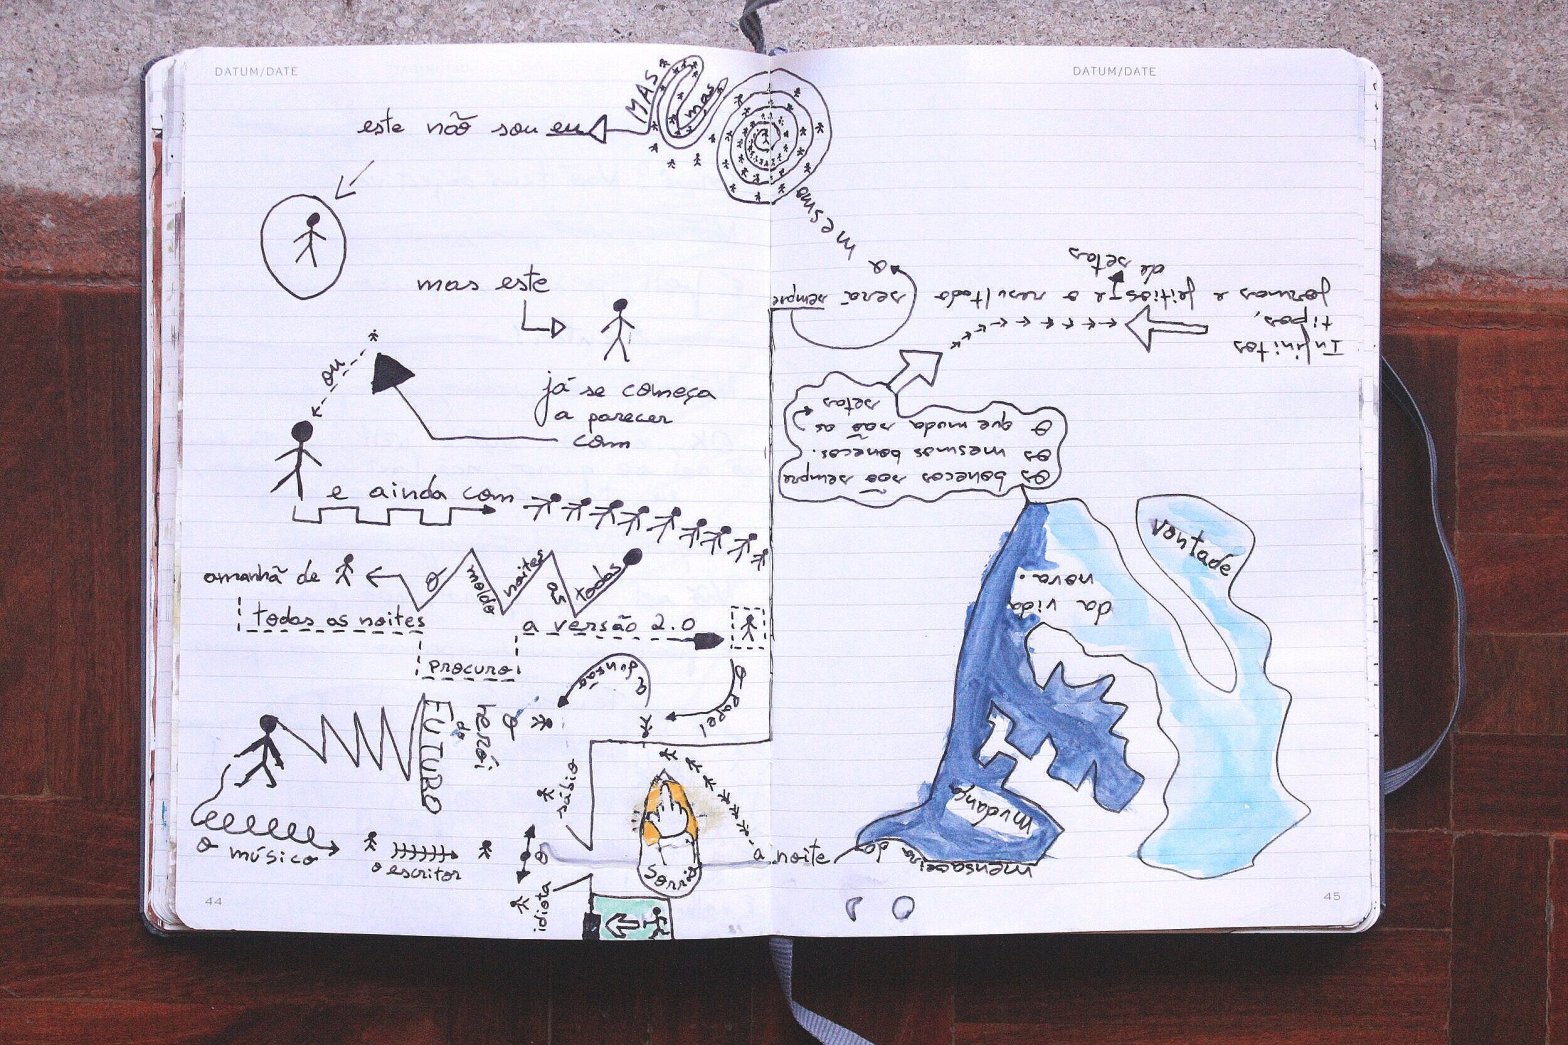 DATUM/DATE
este não sou eu
MAS
mas
mas este
ou
já se começa
a parecer
com
e ainda com
amanhã de
todas os noites
o
molde
noites
as
todas
procuro
a versão 2.0
o papel
FUTURO
de
herói
o
sábio
o músico
o escritor
o
idiota
a noite
44
DATUM/DATE
mesmo
Infinitos
tipos,
formas e feitios e o resultado será sempre
a
de setas
Os bonecos são sempre
os mesmos bonecos.
O que muda são as
setas
Vontade
da vida
nova.
mudança
mensageira
da
45